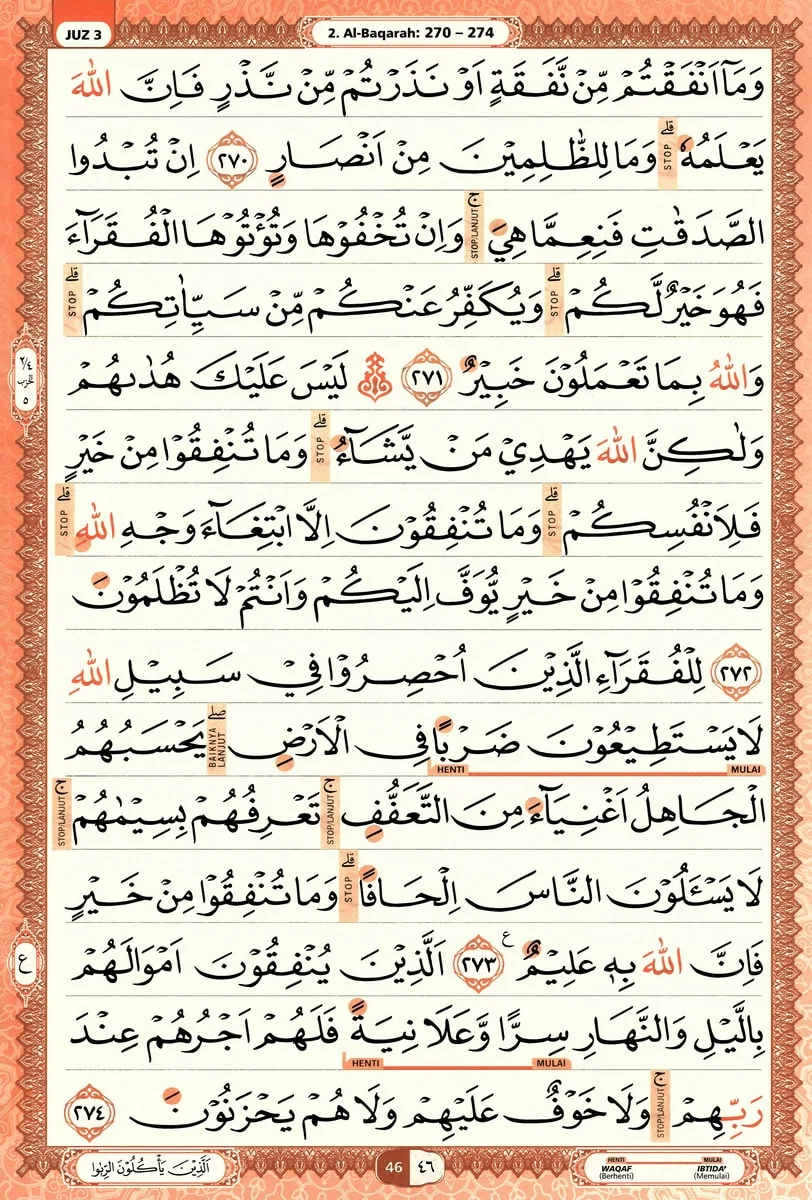 JUZ 3
2. Al-Baqarah: 270 – 274
وَمَآ اَنْفَقْتُمْ مِّنْ نَّفَقَةٍ اَوْ نَذَرْتُمْ مِّنْ نَّذْرٍ فَاِنَّ اللّٰهَ
يَعْلَمُهٗ ۗ STOP وَمَا لِلظّٰلِمِيْنَ مِنْ اَنْصَارٍ ٢٧٠ اِنْ تُبْدُوا
الصَّدَقٰتِ فَنِعِمَّا هِيَ ۚ STOP/LANJUT وَاِنْ تُخْفُوْهَا وَتُؤْتُوْهَا الْفُقَرَآءَ
فَهُوَ خَيْرٌ لَّكُمْ ۗ STOP وَيُكَفِّرُ عَنْكُمْ مِّنْ سَيِّاٰتِكُمْ ۗ STOP
وَاللّٰهُ بِمَا تَعْمَلُوْنَ خَبِيْرٌ ٢٧١ ۞ لَيْسَ عَلَيْكَ هُدٰىهُمْ
٢/٤
الحزب
٥
وَلٰكِنَّ اللّٰهَ يَهْدِيْ مَنْ يَّشَاۤءُ ۗ STOP وَمَا تُنْفِقُوْا مِنْ خَيْرٍ
فَلِاَنْفُسِكُمْ ۗ STOP وَمَا تُنْفِقُوْنَ اِلَّا ابْتِغَاۤءَ وَجْهِ اللّٰهِ ۗ STOP
وَمَا تُنْفِقُوْا مِنْ خَيْرٍ يُّوَفَّ اِلَيْكُمْ وَاَنْتُمْ لَا تُظْلَمُوْنَ
٢٧٢ لِلْفُقَرَاۤءِ الَّذِيْنَ اُحْصِرُوْا فِيْ سَبِيْلِ اللّٰهِ
لَا يَسْتَطِيْعُوْنَ ضَرْبًا فِى الْاَرْضِ ۖ BAIKNYA LANJUT يَحْسَبُهُمُ
HENTI MULAI
الْجَاهِلُ اَغْنِيَاۤءَ مِنَ التَّعَفُّفِ ۚ STOP/LANJUT تَعْرِفُهُمْ بِسِيْمٰهُمْ ۚ STOP/LANJUT
لَا يَسْـَٔلُوْنَ النَّاسَ اِلْحَافًا ۗ STOP وَمَا تُنْفِقُوْا مِنْ خَيْرٍ
فَاِنَّ اللّٰهَ بِهٖ عَلِيْمٌ ٢٧٣ ع اَلَّذِيْنَ يُنْفِقُوْنَ اَمْوَالَهُمْ
ع
بِالَّيْلِ وَالنَّهَارِ سِرًّا وَّعَلَانِيَةً فَلَهُمْ اَجْرُهُمْ عِنْدَ
HENTI MULAI
رَبِّهِمْ ۚ STOP/LANJUT وَلَا خَوْفٌ عَلَيْهِمْ وَلَا هُمْ يَحْزَنُوْنَ ٢٧٤
اَلَّذِيْنَ يَأْكُلُوْنَ الرِّبٰوا
46 ٤٦
HENTI MULAI
WAQAF IBTIDA'
(Berhenti) (Memulai)